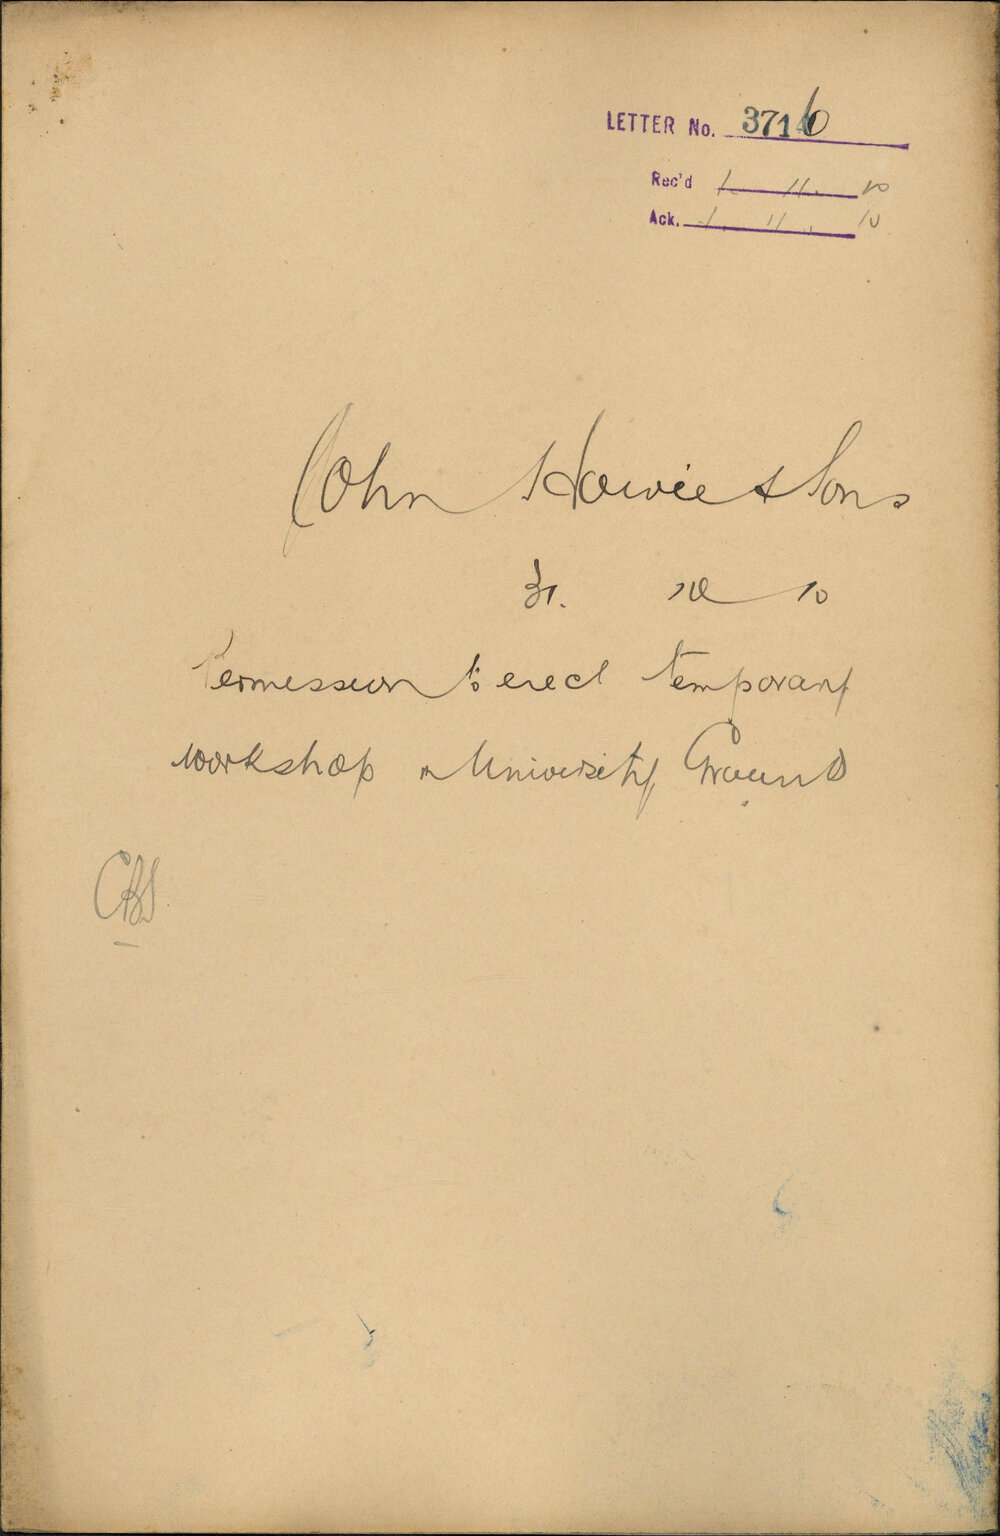 LETTER No. 3716
Rec'd 1. 11. 10
Ack. 1. 11. 10
John Howie & Sons
31. 10 10
Permission to erect temporary
workshop in University Grounds